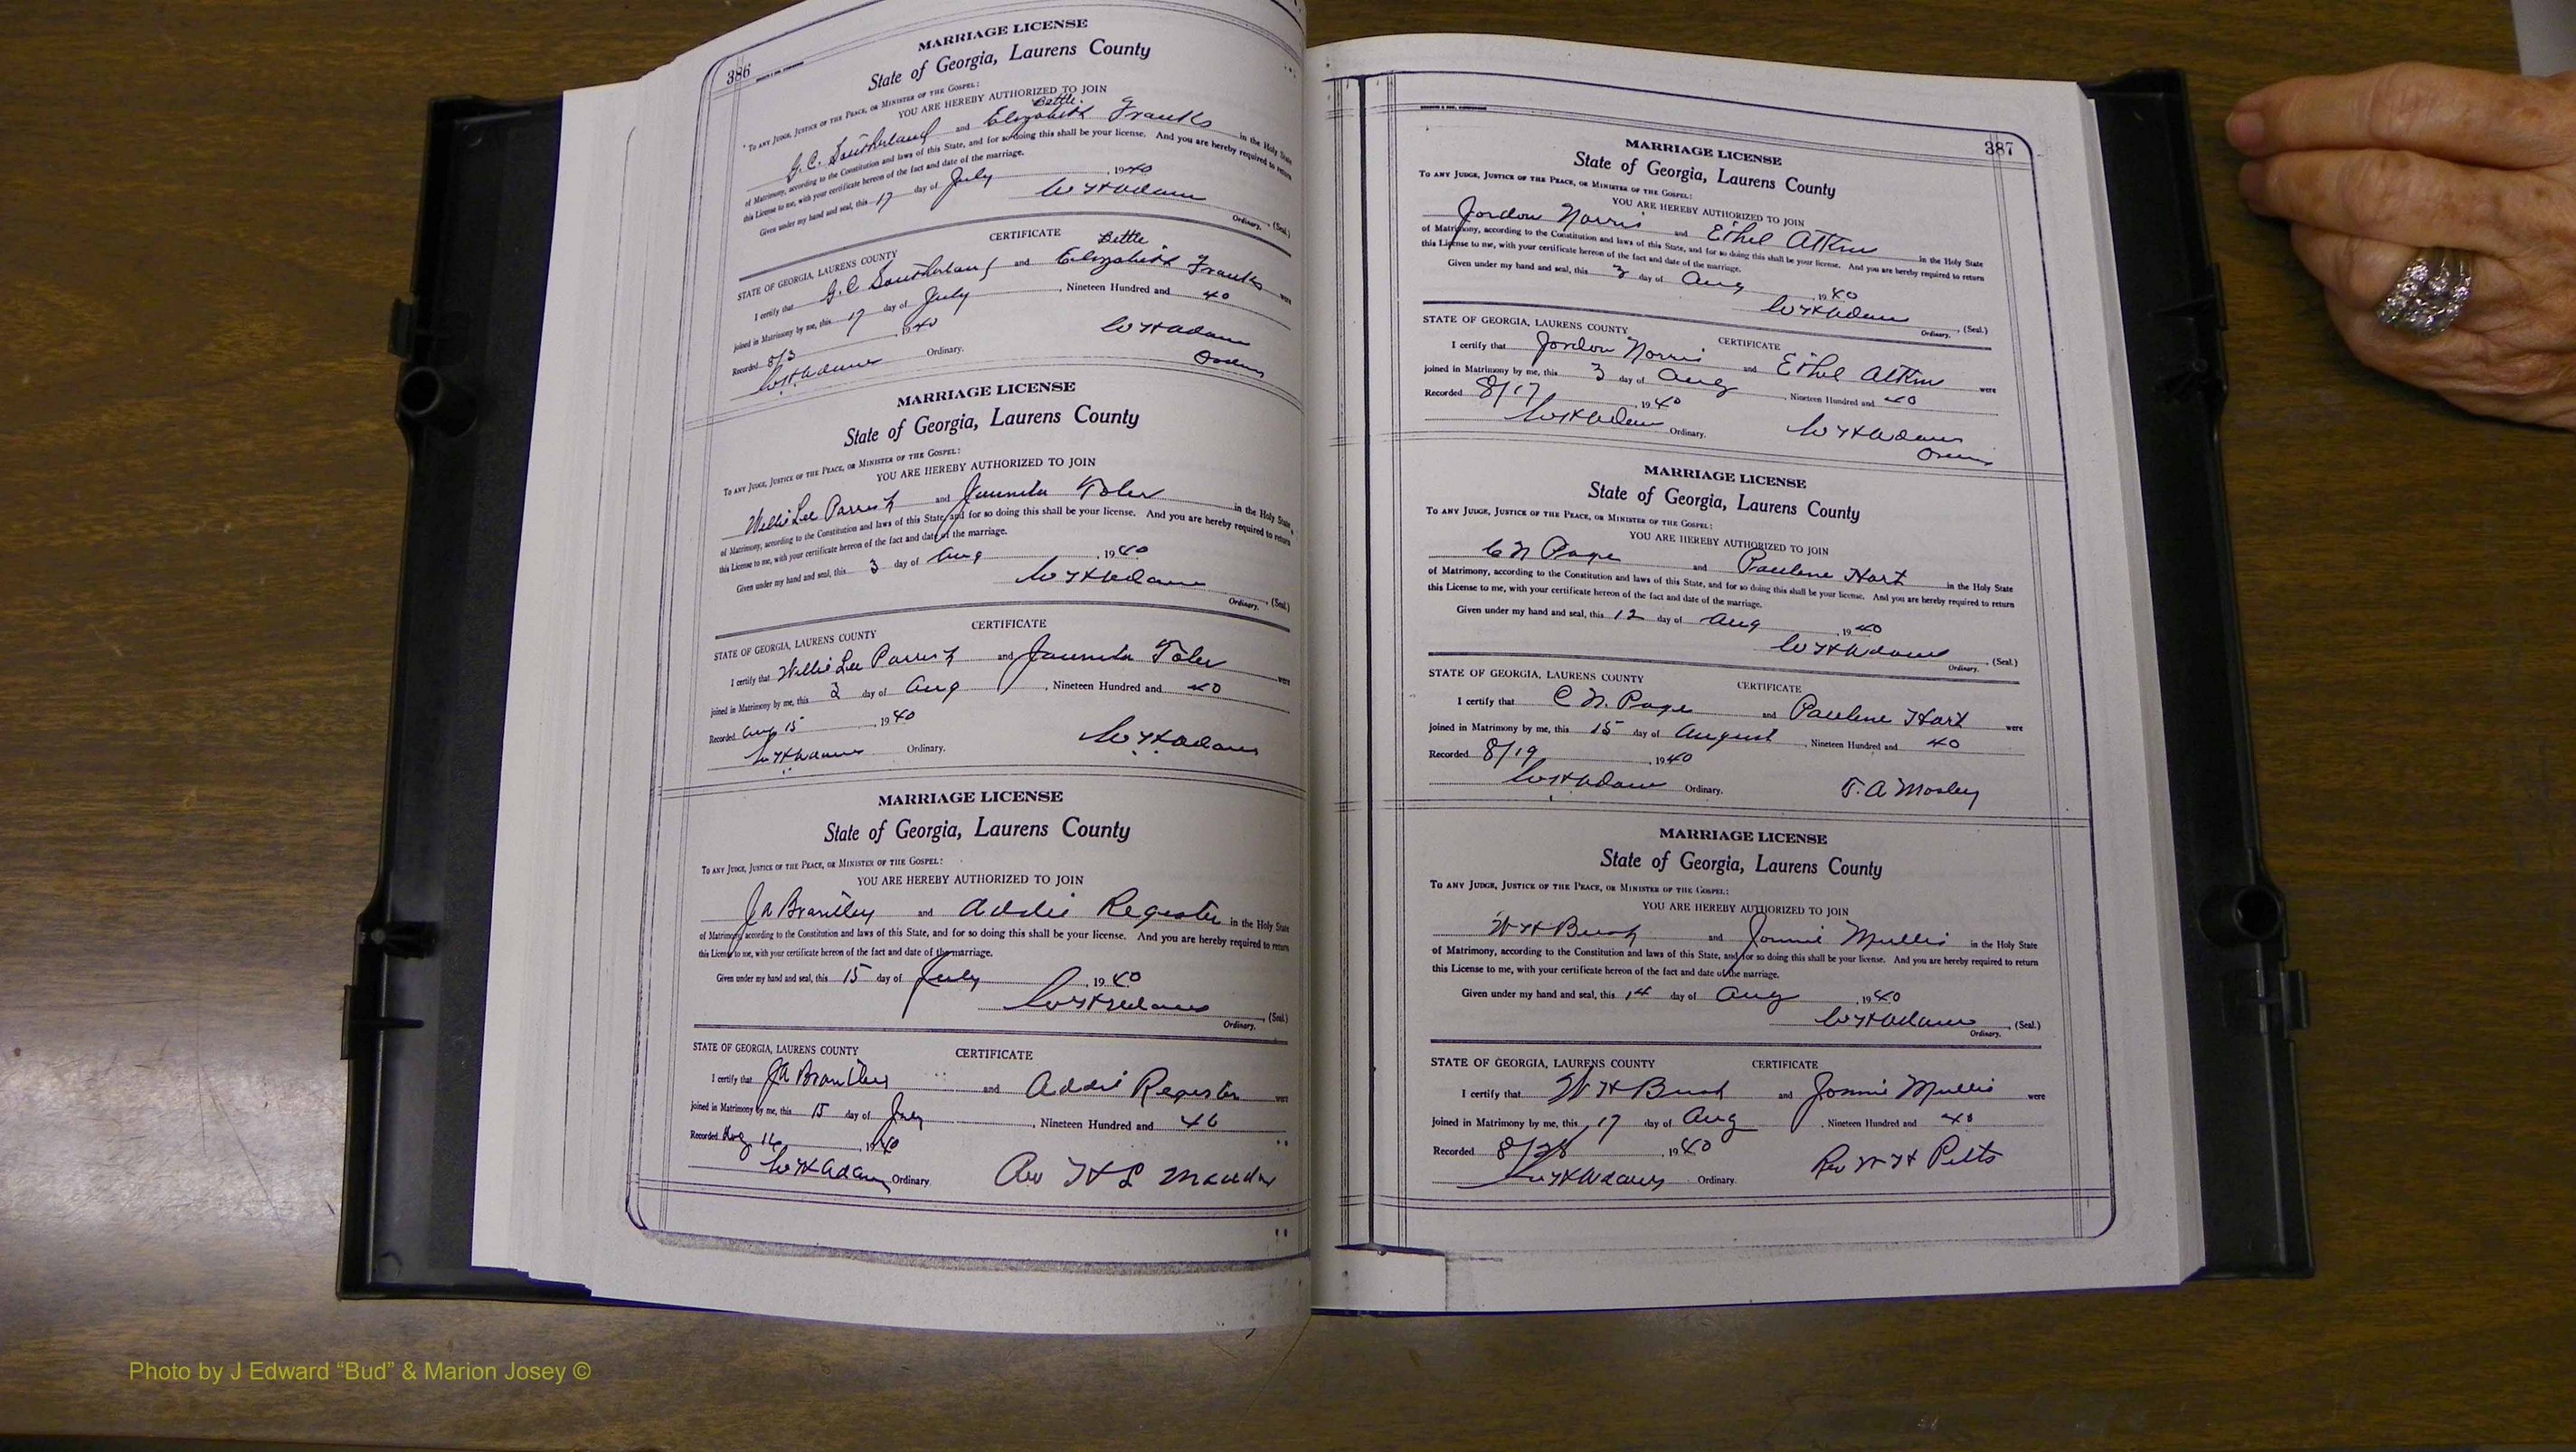 386
MARRIAGE LICENSE
State of Georgia, Laurens County
To any Judge, Justice of the Peace, or Minister of the Gospel:
YOU ARE HEREBY AUTHORIZED TO JOIN
Bettie
G.C. Southerland and Elizabeth Franks in the Holy State
of Matrimony, according to the Constitution and laws of this State, and for so doing this shall be your license. And you are hereby required to return
this License to me, with your certificate hereon of the fact and date of the marriage.
Given under my hand and seal, this 17 day of July, 1940
W H Adams (Seal.)
Ordinary.
CERTIFICATE
STATE OF GEORGIA, LAURENS COUNTY
Bettie
I certify that G.C Southerland and Elizabeth Franks were
joined in Matrimony by me, this 17 day of July, Nineteen Hundred and 40
Recorded 8/3 1940
W H Adams Ordinary. W H Adams
MARRIAGE LICENSE
State of Georgia, Laurens County
To any Judge, Justice of the Peace, or Minister of the Gospel:
YOU ARE HEREBY AUTHORIZED TO JOIN
Willie Lee Parrish and Juanita Toler in the Holy State
of Matrimony, according to the Constitution and laws of this State, and for so doing this shall be your license. And you are hereby required to return
this License to me, with your certificate hereon of the fact and date of the marriage.
Given under my hand and seal, this 3 day of Aug, 1940
W H Adams (Seal.)
Ordinary.
CERTIFICATE
STATE OF GEORGIA, LAURENS COUNTY
I certify that Willie Lee Parrish and Juanita Toler were
joined in Matrimony by me, this 3 day of Aug, Nineteen Hundred and 40
Recorded Aug 15, 1940
W H Adams Ordinary. W H Adams
MARRIAGE LICENSE
State of Georgia, Laurens County
To any Judge, Justice of the Peace, or Minister of the Gospel:
YOU ARE HEREBY AUTHORIZED TO JOIN
J A Brantley and Addie Register in the Holy State
of Matrimony, according to the Constitution and laws of this State, and for so doing this shall be your license. And you are hereby required to return
this License to me, with your certificate hereon of the fact and date of the marriage.
Given under my hand and seal, this 15 day of July, 1940
W H Adams (Seal.)
Ordinary.
STATE OF GEORGIA, LAURENS COUNTY CERTIFICATE
I certify that J A Brantley and Addie Register were
joined in Matrimony by me, this 15 day of July, Nineteen Hundred and 40
Recorded Aug 16, 1940
W H Adams Ordinary. Rev H L
387
MARRIAGE LICENSE
State of Georgia, Laurens County
To any Judge, Justice of the Peace, or Minister of the Gospel:
YOU ARE HEREBY AUTHORIZED TO JOIN
Jordon Norris and Ethel Atkin in the Holy State
of Matrimony, according to the Constitution and laws of this State, and for so doing this shall be your license. And you are hereby required to return
this License to me, with your certificate hereon of the fact and date of the marriage.
Given under my hand and seal, this 3 day of Aug, 1940
W H Adams (Seal.)
Ordinary.
STATE OF GEORGIA, LAURENS COUNTY CERTIFICATE
I certify that Jordon Norris and Ethel Atkin were
joined in Matrimony by me, this 3 day of Aug, Nineteen Hundred and 40
Recorded 8/17, 1940
W H Adams Ordinary. W H Adams
MARRIAGE LICENSE
State of Georgia, Laurens County
To any Judge, Justice of the Peace, or Minister of the Gospel:
YOU ARE HEREBY AUTHORIZED TO JOIN
C N Page and Pauline Hart in the Holy State
of Matrimony, according to the Constitution and laws of this State, and for so doing this shall be your license. And you are hereby required to return
this License to me, with your certificate hereon of the fact and date of the marriage.
Given under my hand and seal, this 12 day of Aug, 1940
W H Adams (Seal.)
Ordinary.
STATE OF GEORGIA, LAURENS COUNTY CERTIFICATE
I certify that C N. Page and Pauline Hart were
joined in Matrimony by me, this 15 day of August, Nineteen Hundred and 40
Recorded 8/19, 1940
W H Adams Ordinary. T. A Mosley
MARRIAGE LICENSE
State of Georgia, Laurens County
To any Judge, Justice of the Peace, or Minister of the Gospel:
YOU ARE HEREBY AUTHORIZED TO JOIN
W H Bush and Jonnie Mullis in the Holy State
of Matrimony, according to the Constitution and laws of this State, and for so doing this shall be your license. And you are hereby required to return
this License to me, with your certificate hereon of the fact and date of the marriage.
Given under my hand and seal, this 14 day of Aug, 1940
W H Adams (Seal.)
Ordinary.
STATE OF GEORGIA, LAURENS COUNTY CERTIFICATE
I certify that W H Bush and Jonnie Mullis were
joined in Matrimony by me, this 17 day of Aug, Nineteen Hundred and 40
Recorded 8/28, 1940
W H Adams Ordinary. Rev W H Pitts
Photo by J Edward “Bud” & Marion Josey ©